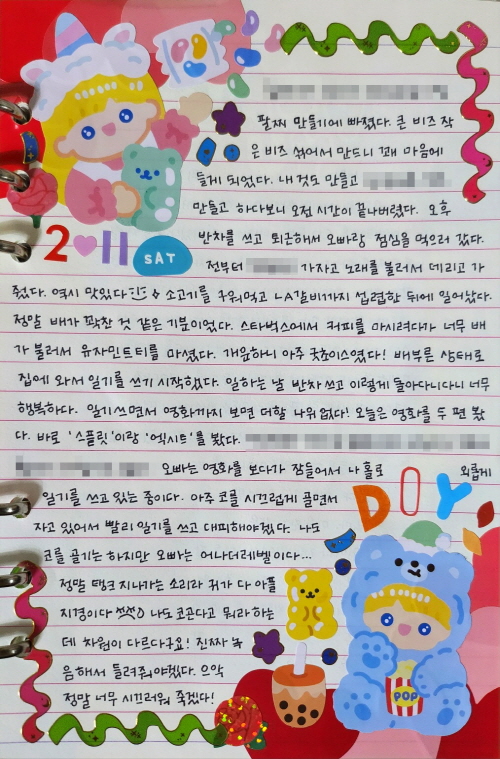 팔찌 만들기에 빠졌다. 큰 비즈 작
은 비즈 섞어서 만드니 꽤 마음에
들게 되었다. 내 것도 만들고
만들고 하다보니 오전 시간이 끝나버렸다. 오후
2 11 SAT
반차를 쓰고 퇴근해서 오빠랑 점심을 먹으러 갔다.
전부터 가자고 노래를 불러서 데리고 가
줬다. 역시 맛있다 소고기를 구워먹고 LA갈비까지 섭렵한 뒤에 일어났다.
정말 배가 꽉찬 것 같은 기분이었다. 스타벅스에서 커피를 마시려다가 너무 배
가 불러서 유자민트티를 마셨다. 개운하니 아주 굿초이스였다! 배부른 상태로
집에 와서 일기를 쓰기 시작했다. 일하는 날 반차쓰고 이렇게 돌아다니다니 너무
행복하다. 일기쓰면서 영화까지 보면 더할 나위없다! 오늘은 영화를 두 편 봤
다. 바로 '스플릿'이랑 '엑시트'를 봤다.
오빠는 영화를 보다가 잠들어서 나홀로 외롭게
일기를 쓰고 있는 중이다. 아주 코를 시끄럽게 골면서
DIY
자고 있어서 빨리 일기를 쓰고 대피해야겠다. 나도
코를 골기는 하지만 오빠는 어나더레벨이다...
정말 탱크 지나가는 소리라 귀가 다 아플
지경이다 나도 코곤다고 뭐라 하는
데 차원이 다르다구요! 진짜 녹
음해서 들려줘야겠다. 으악
정말 너무 시끄러워 죽겠다!
POP